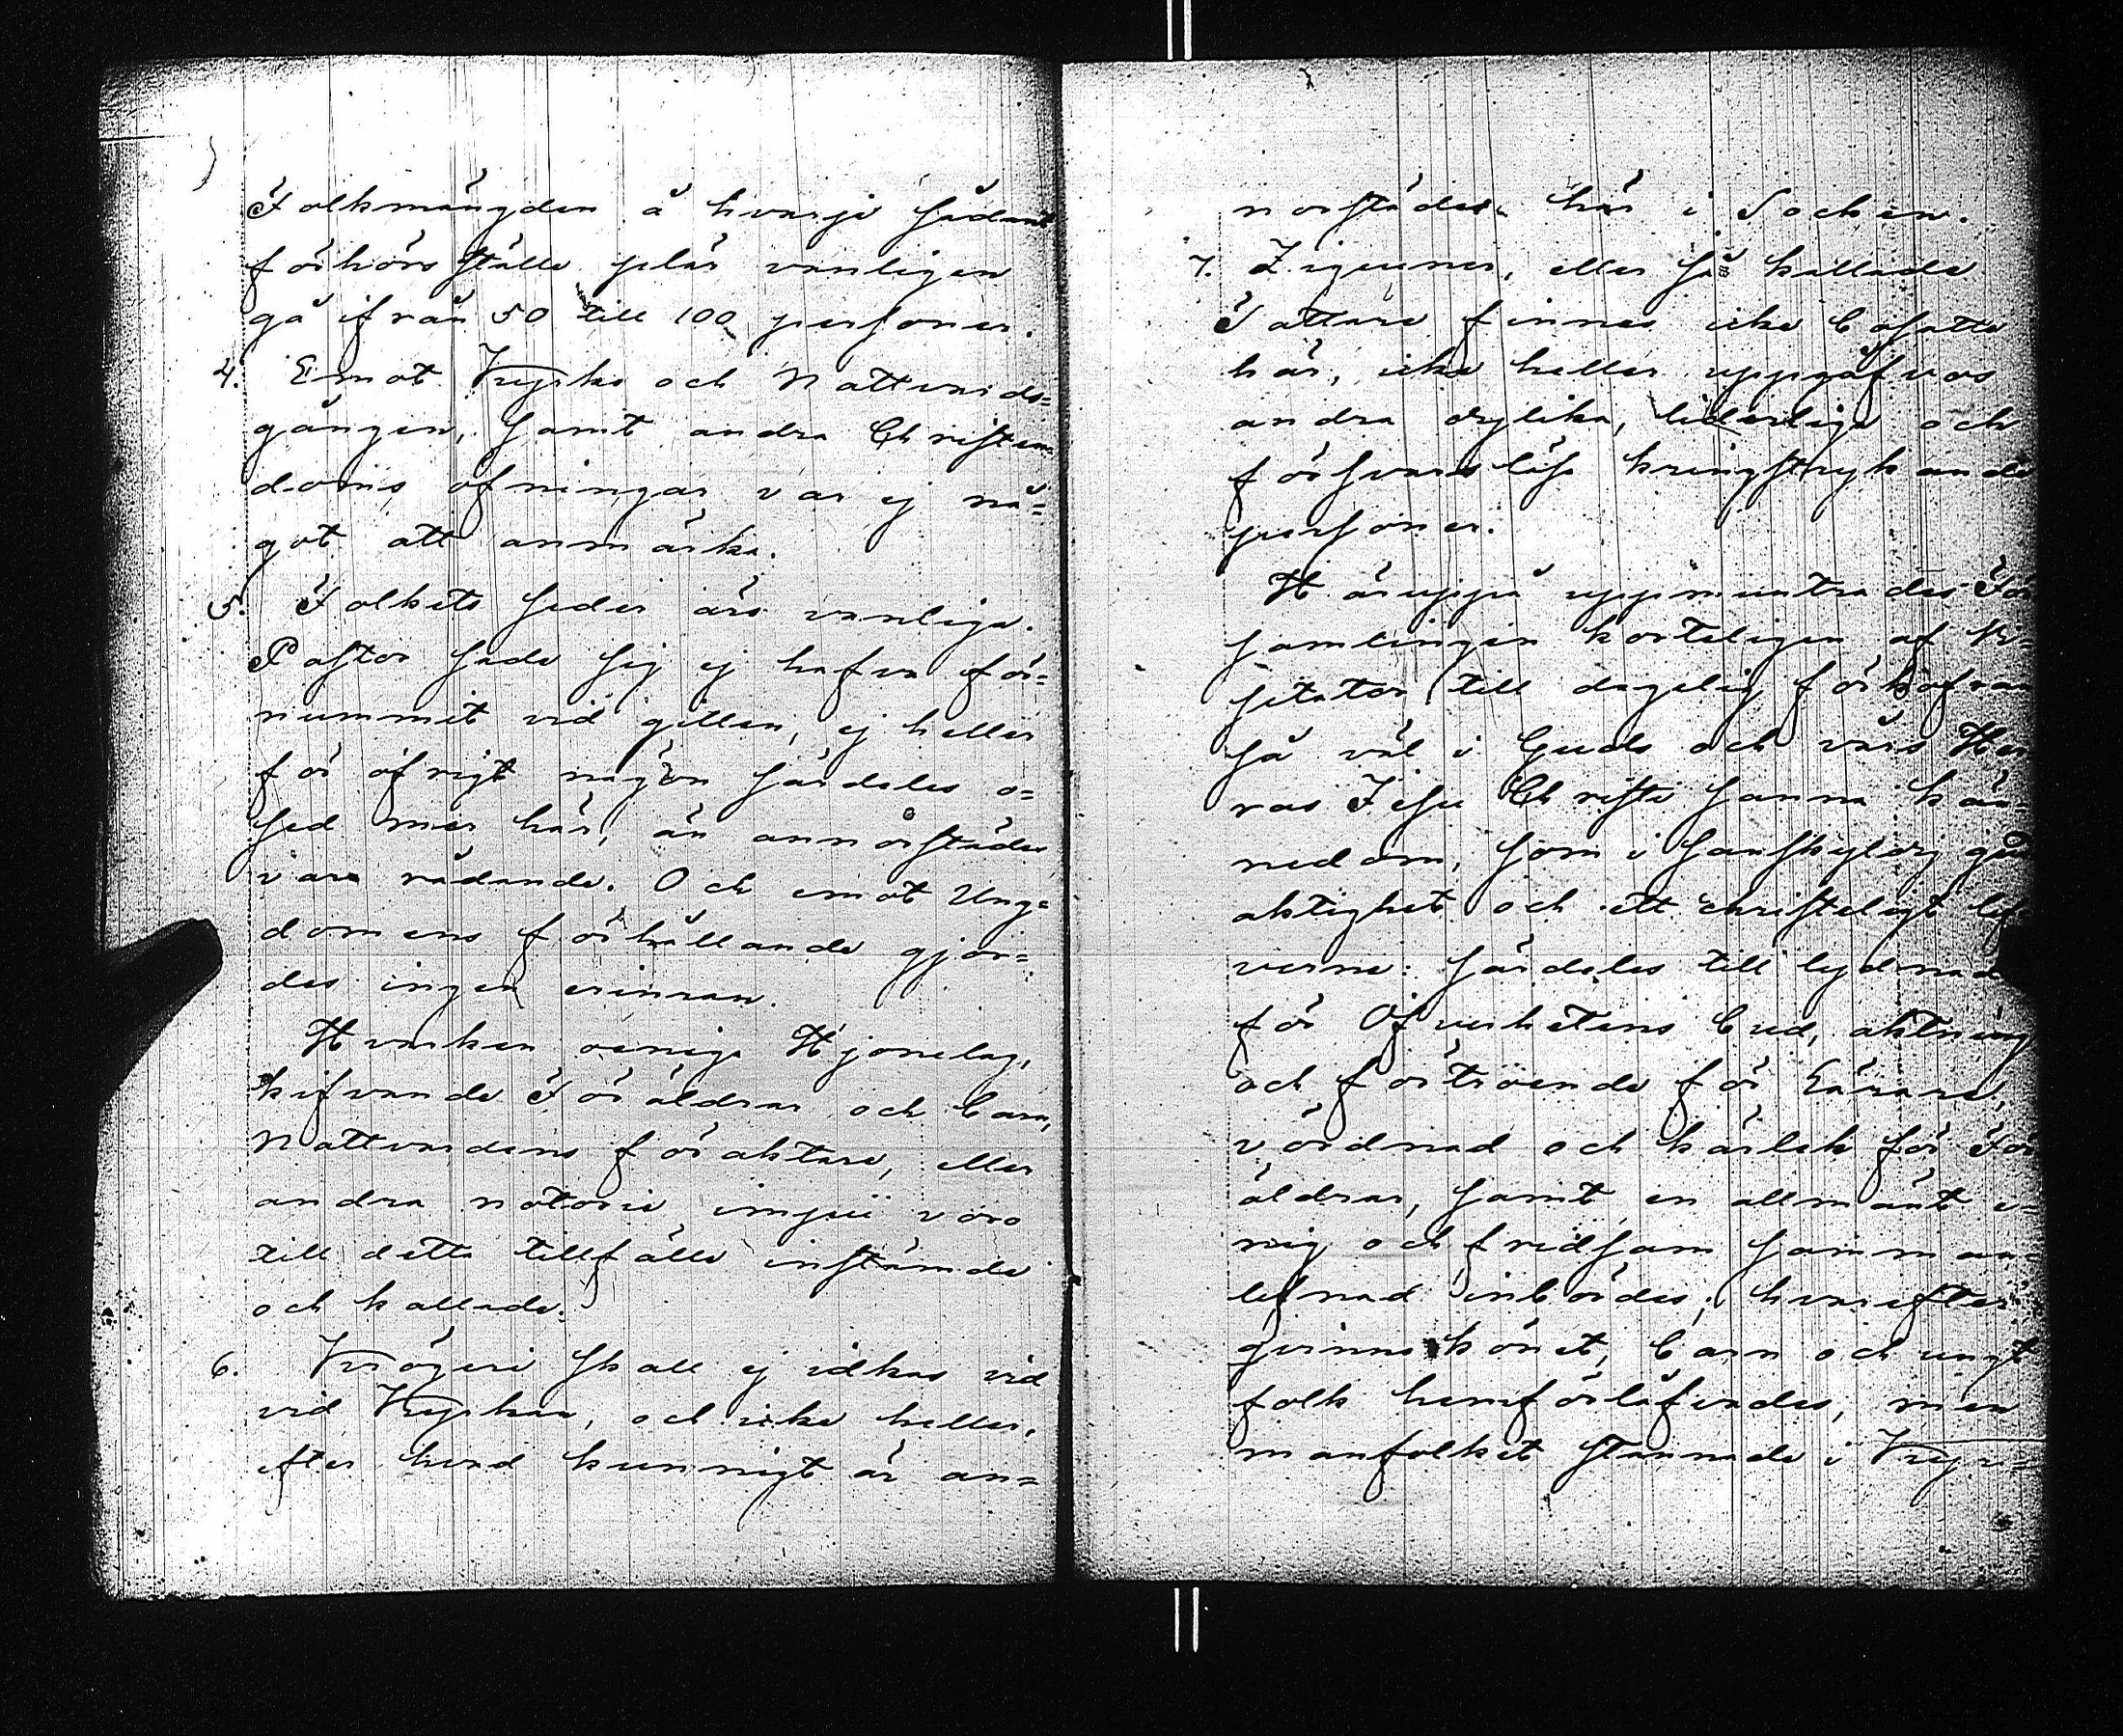 Folkmängden å hvarje sådant
förhörsställe plär vanligen
gå ifrån 50 till 100 personer.
4. Emot Kyrko och Nattvards=
gången, samt andra Christen
doms öfningar var ej nå=
got att anmärka.
5. Folkets seder äro vanliga.
Pastor sade sig ej hafva för=
nummit vid gillen, ej heller
för öfrigt någon särdeles o=
sed mer här, än annorstädes
vara rådande. Och emot Ung=
domens förhållande gjor=
des ingen erinran.
Hvarken oenige Hjonelag,
kifvande Föräldrar och barn,
Nattvardens föraktare, eller
andra notorie impii voro
till detta tillfälle instämde
och kallade.
6. Krögeri skall ej idkas vid
vid Kyrkan, och icke heller,
efter hvad kunnigt är an=
norstädes här i Socken.
7. Zigeuner, eller så kallade
Tattare finnes icke bosatte
här, icke heller uppgåfvos
andra dylika, liderliga och
försvarslösa kringstrykande
personer.
Häruppå uppmuntrades För
samlingen korteligen af Vi=
sitator till dagelig förkofran
så väl i Guds och vårs Her
ras Jesu Christi sanna kän
nedom, som i sanskyldig gud
aktighet och ett christeligt lef
verne: särdeles till lydnad
för Öfverhetens bud, aktning
och förtroende för Lärare,
vördnad och kärlek för För
äldrar, samt en allmänt e=
nig och fridsam samman=
lefnad inbördes; hvarefter
qvinnokönet, barn och ungt
folk hemförlåfvades, men
manfolket stannade i Kyr=